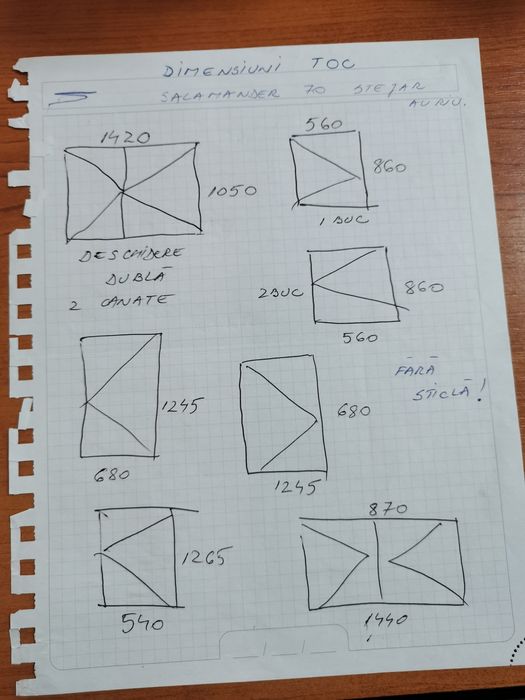 DIMENSIUNI TOC
SALAMANDER 70 STEJAR
AURIU.
1420
1050
DESCHIDERE
DUBLĂ
2 CANATE
560
860
1 BUC
2 BUC
860
560
FĂRĂ
STICLĂ!
1245
680
680
1245
1265
540
870
1440